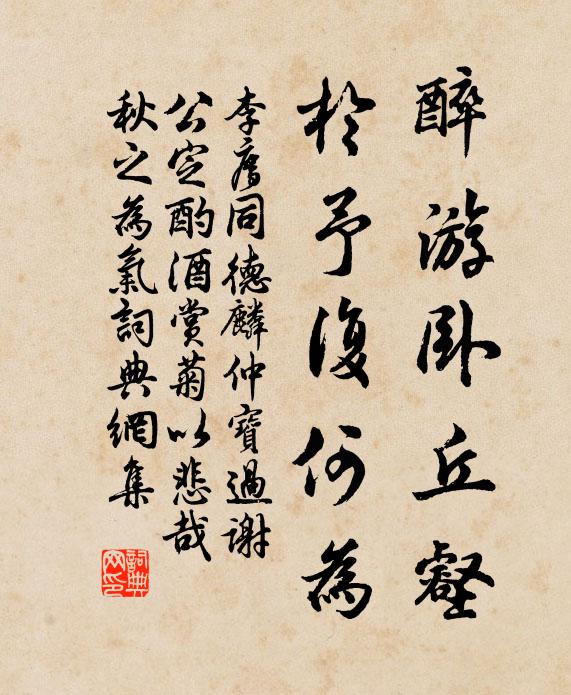 醉游卧丘壑
於予復何為
李廌同德麟仲寶過謝
公定酌酒賞菊以悲哉
秋之為氣詞典網集
詞典網印